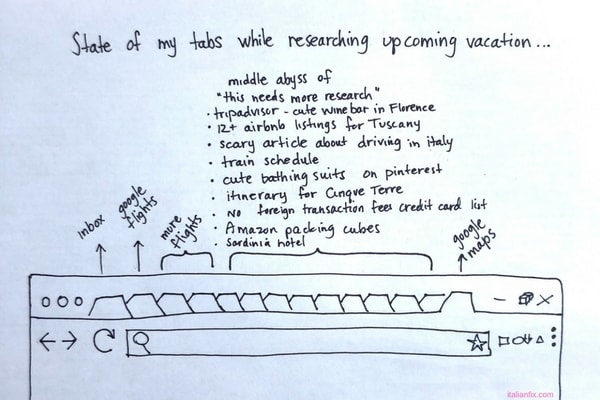 State of my tabs while researching upcoming vacation...
middle abyss of
"this needs more research"
• tripadvisor - cute wine bar in Florence
• 12+ airbnb listings for Tuscany
• scary article about driving in italy
• train schedule
• cute bathing suits on pinterest
• itinerary for Cinque Terre
• No foreign transaction fees credit card list
• Amazon packing cubes
• Sardinia hotel
inbox
google
flights
more
flights
google
maps
italianfix.com